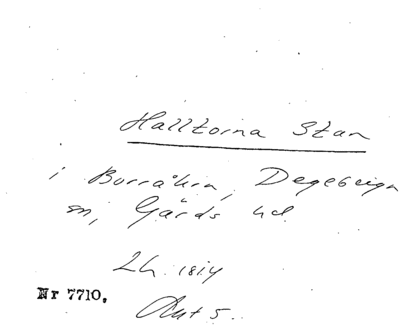 Halltorna Stan
i Borråkra, Degeberga
sn, Gärds hd.
2h. 1814
Nr 7710.
Aut 5.